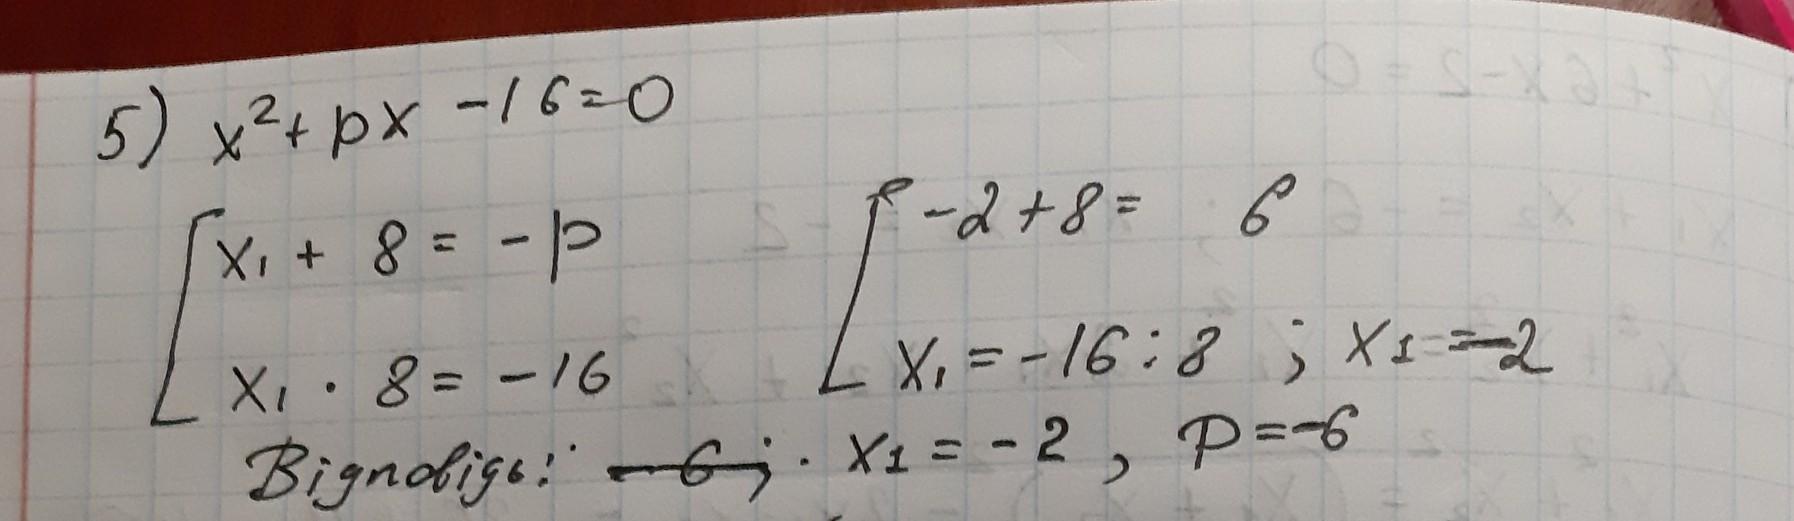 5) x² + px - 16 = 0
x₁ + 8 = - p
x₁ · 8 = - 16
-2 + 8 = 6
x₁ = -16 : 8 ; x₁ = -2
Відповідь: x₁ = -2, p = -6